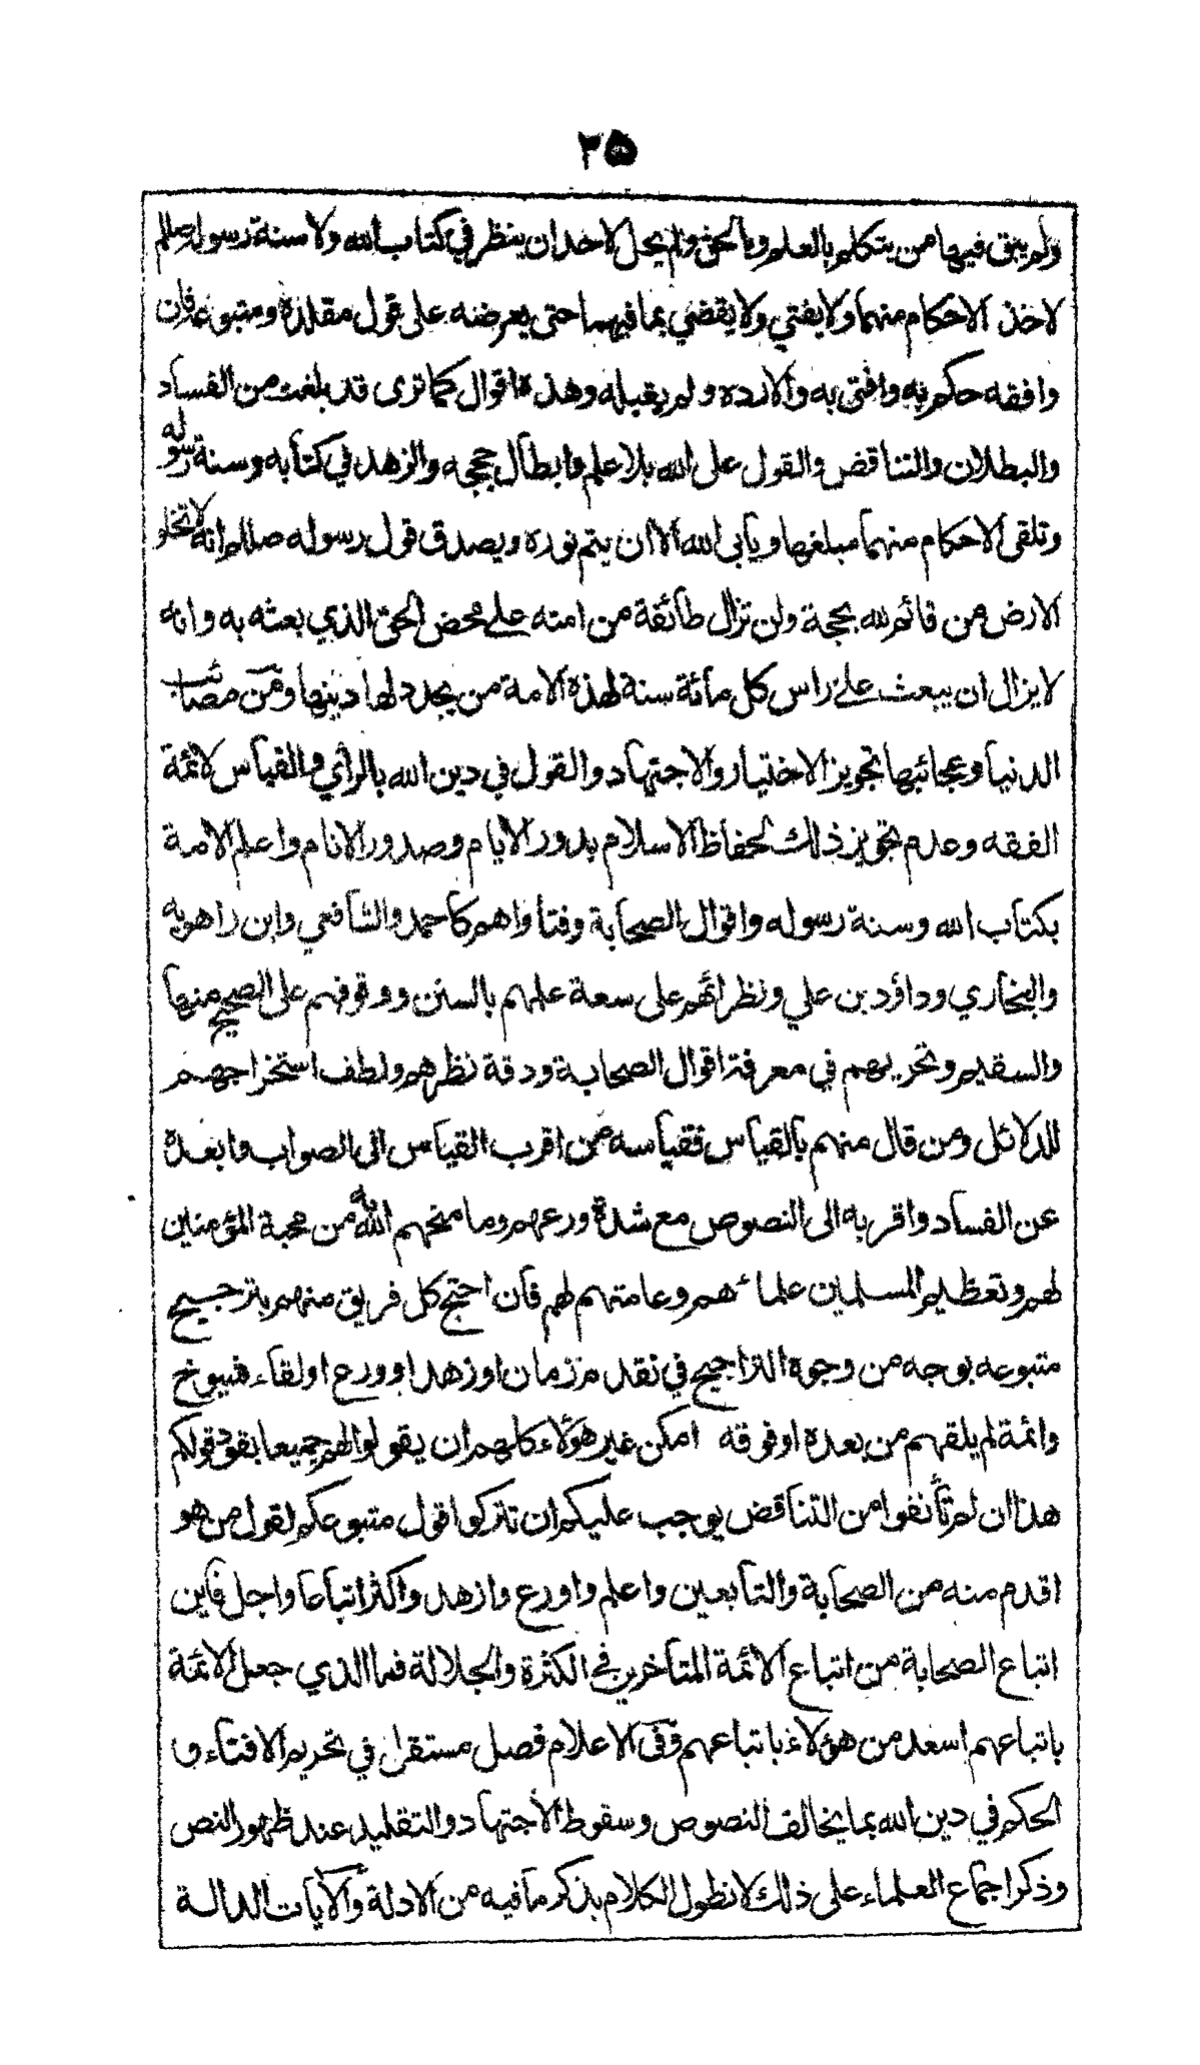 ٢٥
ولم يبق فيها من يتكلم بالعلم وبالحق ولم يحل لاحد ان ينظر في كتاب الله ولا سنة رسوله صللم
لاخذ الاحكام منهما ولا يفتي ولا يقضي بما فيهما حتى يعرضه على قول مقلده ومتبوعه فان
وافقه حكم به وافتى به والا رده ولم يقبله وهذه اقوال كما ترى قد بلغت من الفساد
والبطلان والتناقض والقول على الله بلا علم وابطال حججه والزهد في كتابه وسنة رسوله
وتلقى الاحكام منهما مبلغها ويابى الله الا ان يتم نوره ويصدق قول رسوله صللم انه لا تخلو
الارض من قائم لله بحجة ولن تزال طائفة من امته على محض الحق الذي بعثه به وانه
لا يزال ان يبعث على راس كل مائة سنة لهذه الامة من يجدد لها دينها ومن مصائب
الدنيا وعجائبها تجويز الاختيار والاجتهاد والقول في دين الله بالرأي والقياس لائمة
الفقه وعدم تجويز ذلك لحفاظ الاسلام بدور الايام وصدور الانام واعلم الامة
بكتاب الله وسنة رسوله واقوال الصحابة وفتاواهم كاحمد والشافعي وابن راهويه
والبخاري وداؤد بن علي ونظرائهم على سعة علمهم بالسنن ووقوفهم على الصحيح منها
والسقيم وتحريهم في معرفة اقوال الصحابة ودقة نظرهم ولطف استخراجهم
للدلائل ومن قال منهم بالقياس فقياسه من اقرب القياس الى الصواب وابعده
عن الفساد واقربه الى النصوص مع شدة ورعهم وما منحهم الله به من محبة المؤمنين
لهم وتعظيم المسلمين علمائهم وعامتهم لهم فان احتج كل فريق منهم بترجيح
متبوعه بوجه من وجوه التراجيح في نقدم زمان او زهد او ورع او لقاء شيوخ
وائمة لم يلقهم من بعده او فوقه امكن غير هؤلاء كلهم ان يقولوا لهم جميعا نقود قولكم
هذا ان لم تأنفوا من التناقض يوجب عليكم ان تتركوا قول متبوعكم لقول من هو
اقدم منه من الصحابة والتابعين واعلم واورع وازهد واكثر اتباعا واجل فاين
اتباع الصحابة من اتباع الائمة المتاخرين في الكثرة والجلالة فما الذي جعل الائمة
باتباعهم اسعد من هؤلاء باتباعهم وفي الاعلام فصل مستقل في تحريم الافتاء و
الحكم في دين الله بما يخالف النصوص وسقوط الاجتهاد والتقليد عند ظهور النص
وذكر اجماع العلماء على ذلك لا نطول الكلام بذكر ما فيه من الادلة والآيات الدالة